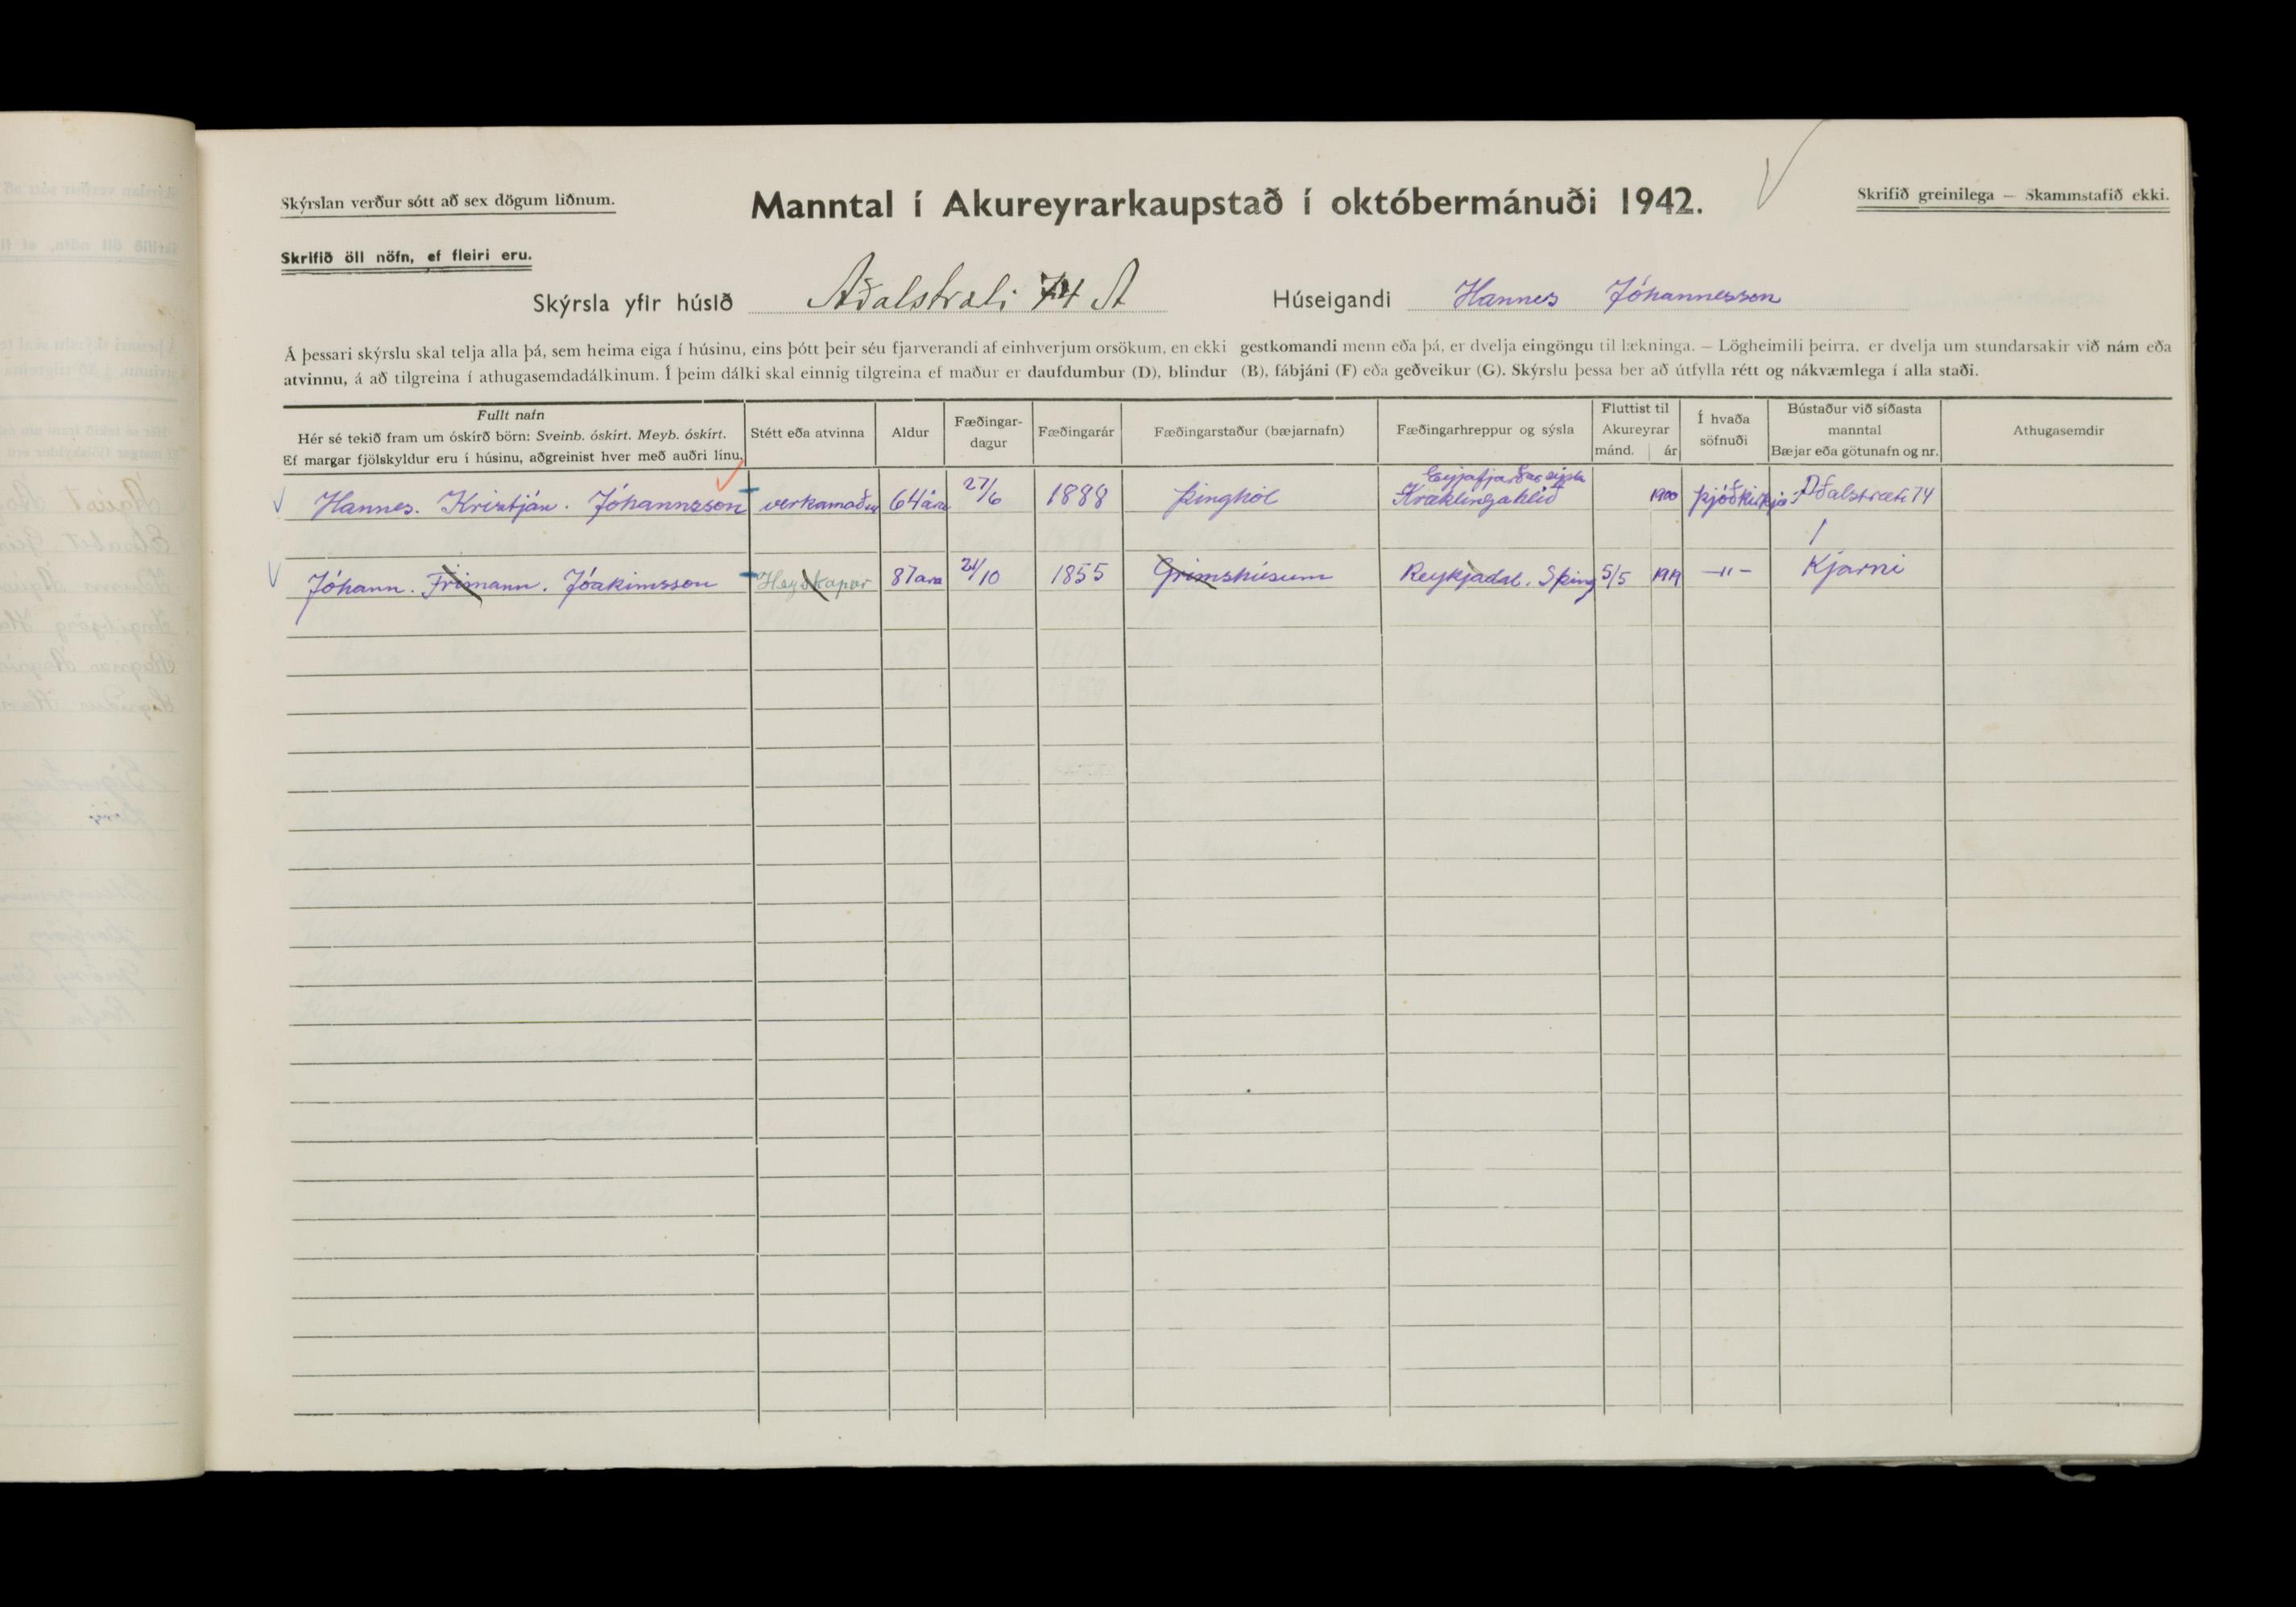 Skýrslan verður sótt að sex dögum liðnum.
Manntal í Akureyrarkaupstað í októbermánuði 1942.
Skrifið greinilega — Skammstafið ekki.
Skrifið öll nöfn, ef fleiri eru.
Skýrsla yfir húsið Aðalstræti 74 A Húseigandi Hannes Jóhannesson
Á þessari skýrslu skal telja alla þá, sem heima eiga í húsinu, eins þótt þeir séu fjarverandi af einhverjum orsökum, en ekki gestkomandi menn eða þá, er dvelja eingöngu til lækninga. — Lögheimili þeirra, er dvelja um stundarsakir við nám eða
atvinnu, á að tilgreina í athugasemdadálkinum. Í þeim dálki skal einnig tilgreina ef maður er daufdumbur (D), blindur (B), fábjáni (F) eða geðveikur (G). Skýrslu þessa ber að útfylla rétt og nákvæmlega í alla staði.
Fullt nafn
Hér sé tekið fram um óskírð börn: Sveinb. óskírt. Meyb. óskírt.
Ef margar fjölskyldur eru í húsinu, aðgreinist hver með auðri línu.
Stétt eða atvinna
Aldur
Fæðingar-
dagur
Fæðingarár
Fæðingarstaður (bæjarnafn)
Fæðingarhreppur og sýsla
Fluttist til
Akureyrar
mánd. ár
Í hvaða
söfnuði
Bústaður við síðasta
manntal
Bæjar eða götunafn og nr.
Athugasemdir
Eyjafjarðarsýsla
Hannes. Kristján. Jóhannsson verkamaður 64 ára 27/6 1888 Þinghól Kræklingahlíð 1900 þjóðkirkja Aðalstræti 74
Jóhann. Frímann. Jóakimsson Heyskapar 87 ara 21/10 1855 Grímshúsum Reykjadal. S þing 5/5 1919 —"— Kjarni